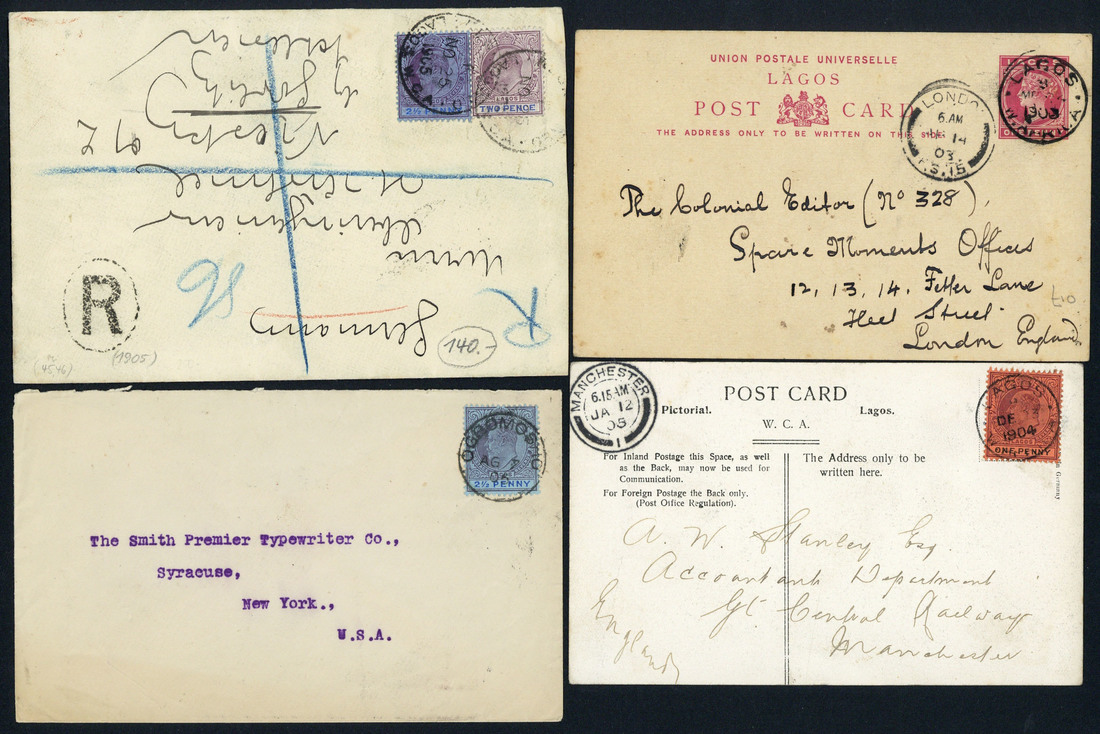 LAGOS
NO 25
1905
2½ PENNY
LAGOS
TWO PENCE
R
R
(1905)
140.-
UNION POSTALE UNIVERSELLE
LAGOS
POST CARD
THE ADDRESS ONLY TO BE WRITTEN ON THIS
LONDON
6. AM
14
03
F.S. 15
LAGOS
1903
W. AFRICA
The Colonial Editor (No 328),
Spare Moments Offices
12, 13, 14. Fetter Lane
Fleet Street
London England
OGBOMOSHO
AG
2½ PENNY
The Smith Premier Typewriter Co.,
Syracuse,
New York.,
U.S.A.
MANCHESTER
6.15 AM
JA 12
05
1
POST CARD
Pictorial. Lagos.
W. C. A.
LAGOS
DE
1904
ONE PENNY
in Germany
For Inland Postage this Space, as well
as the Back, may now be used for
Communication.
For Foreign Postage the Back only.
(Post Office Regulation).
The Address only to be
written here.
A. W. Stanley Esq.
Accountants Department
Gt Central Railway
Manchester
England